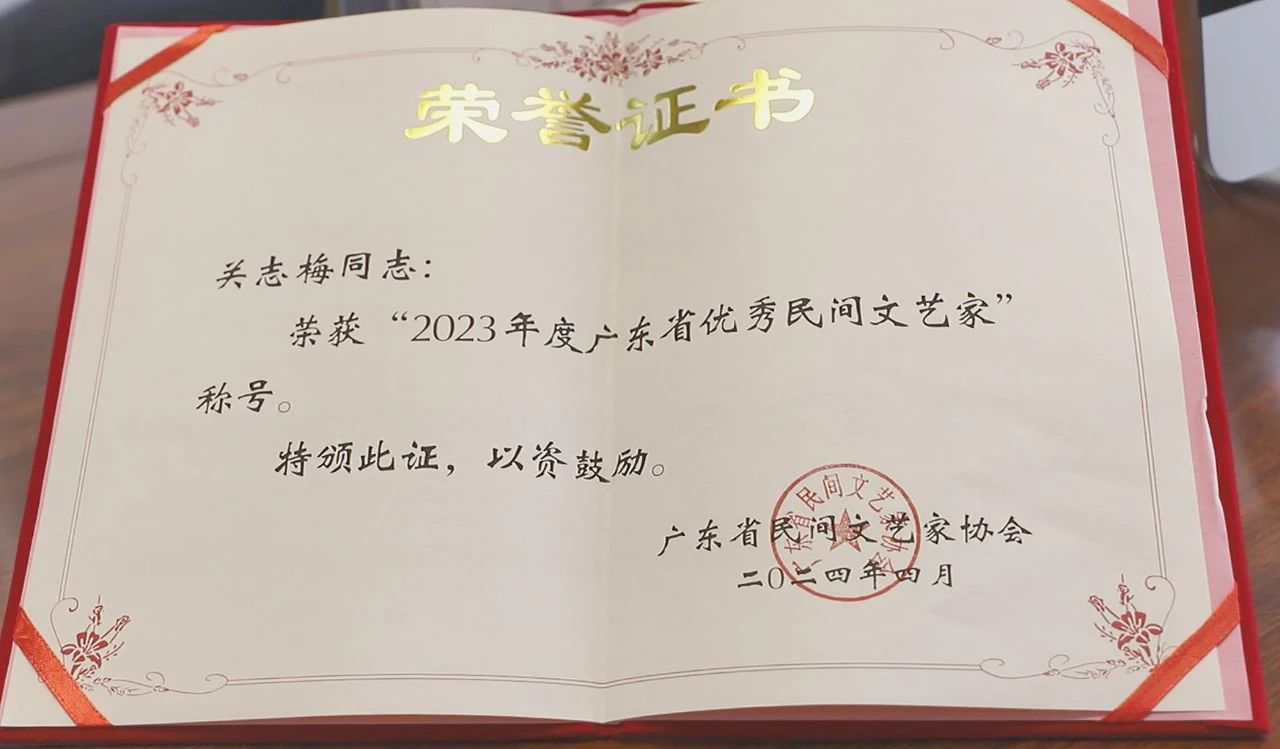 荣誉证书
关志梅同志：
荣获“2023年度广东省优秀民间文艺家”
称号。
特颁此证，以资鼓励。
广东省民间文艺家协会
二〇二四年四月
广东省民间文艺家协会